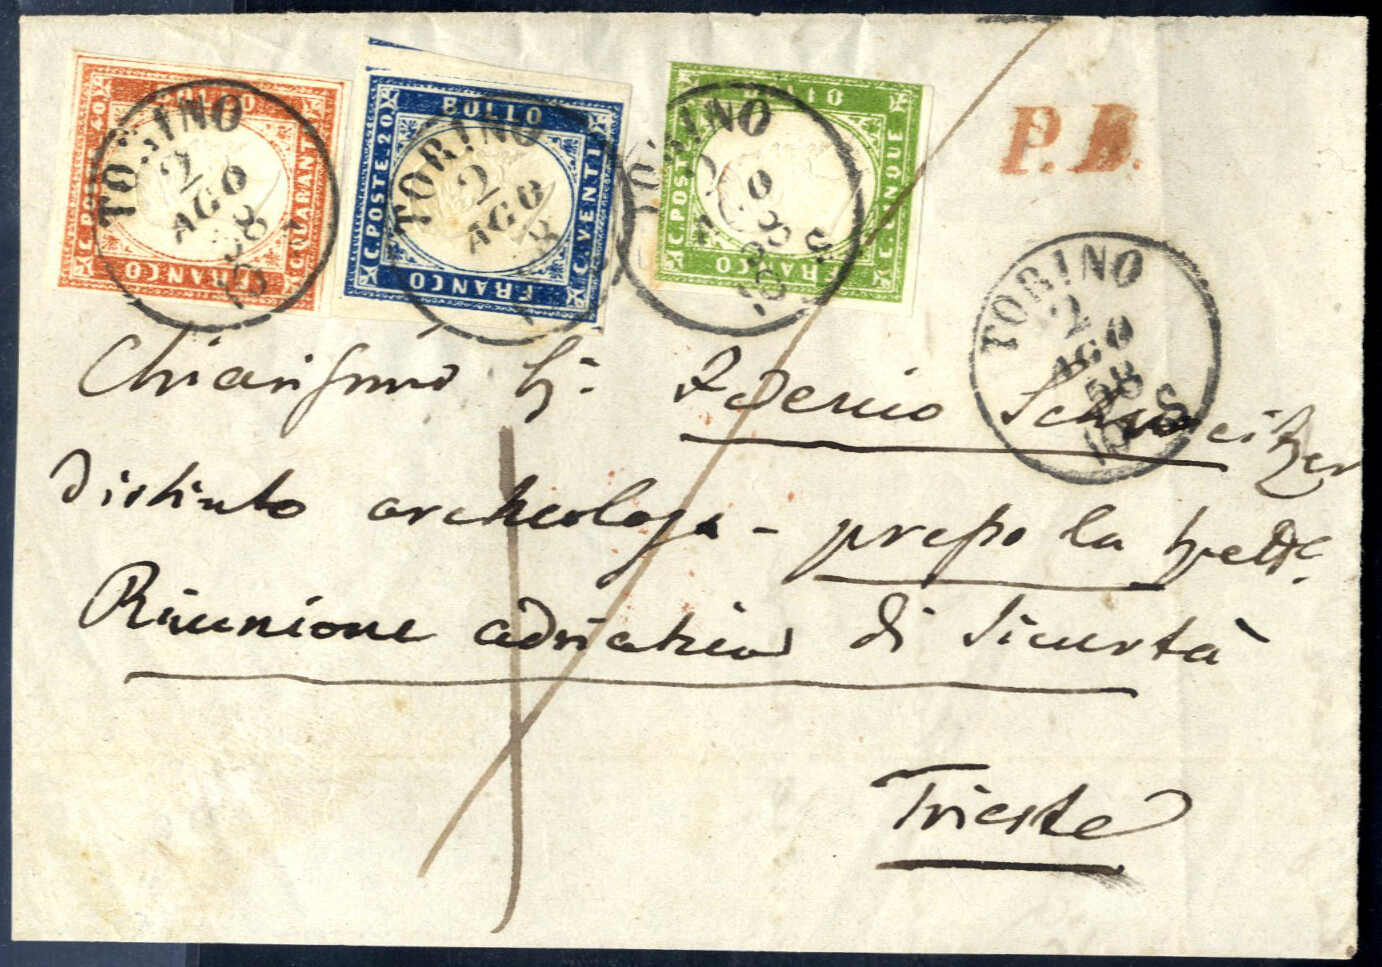 BOLLO
C. POSTE. 40
C. QUARANTA
FRANCO
BOLLO
C. POSTE. 20
C. VENTI
FRANCO
BOLLO
C. POSTE
C. CINQUE
FRANCO
TORINO
2
AGO
58
TORINO
2
AGO
TORINO
2
58
10 S
P. D.
TORINO
2
AGO
58
10 S
Sr. Federico Schweitzer
Distinto archeologo - presso la Spett.e
Riunione adriatica di Sicurtà
Trieste